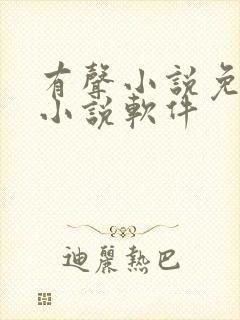 有聲小說免
小說軟件
迪麗熱巴